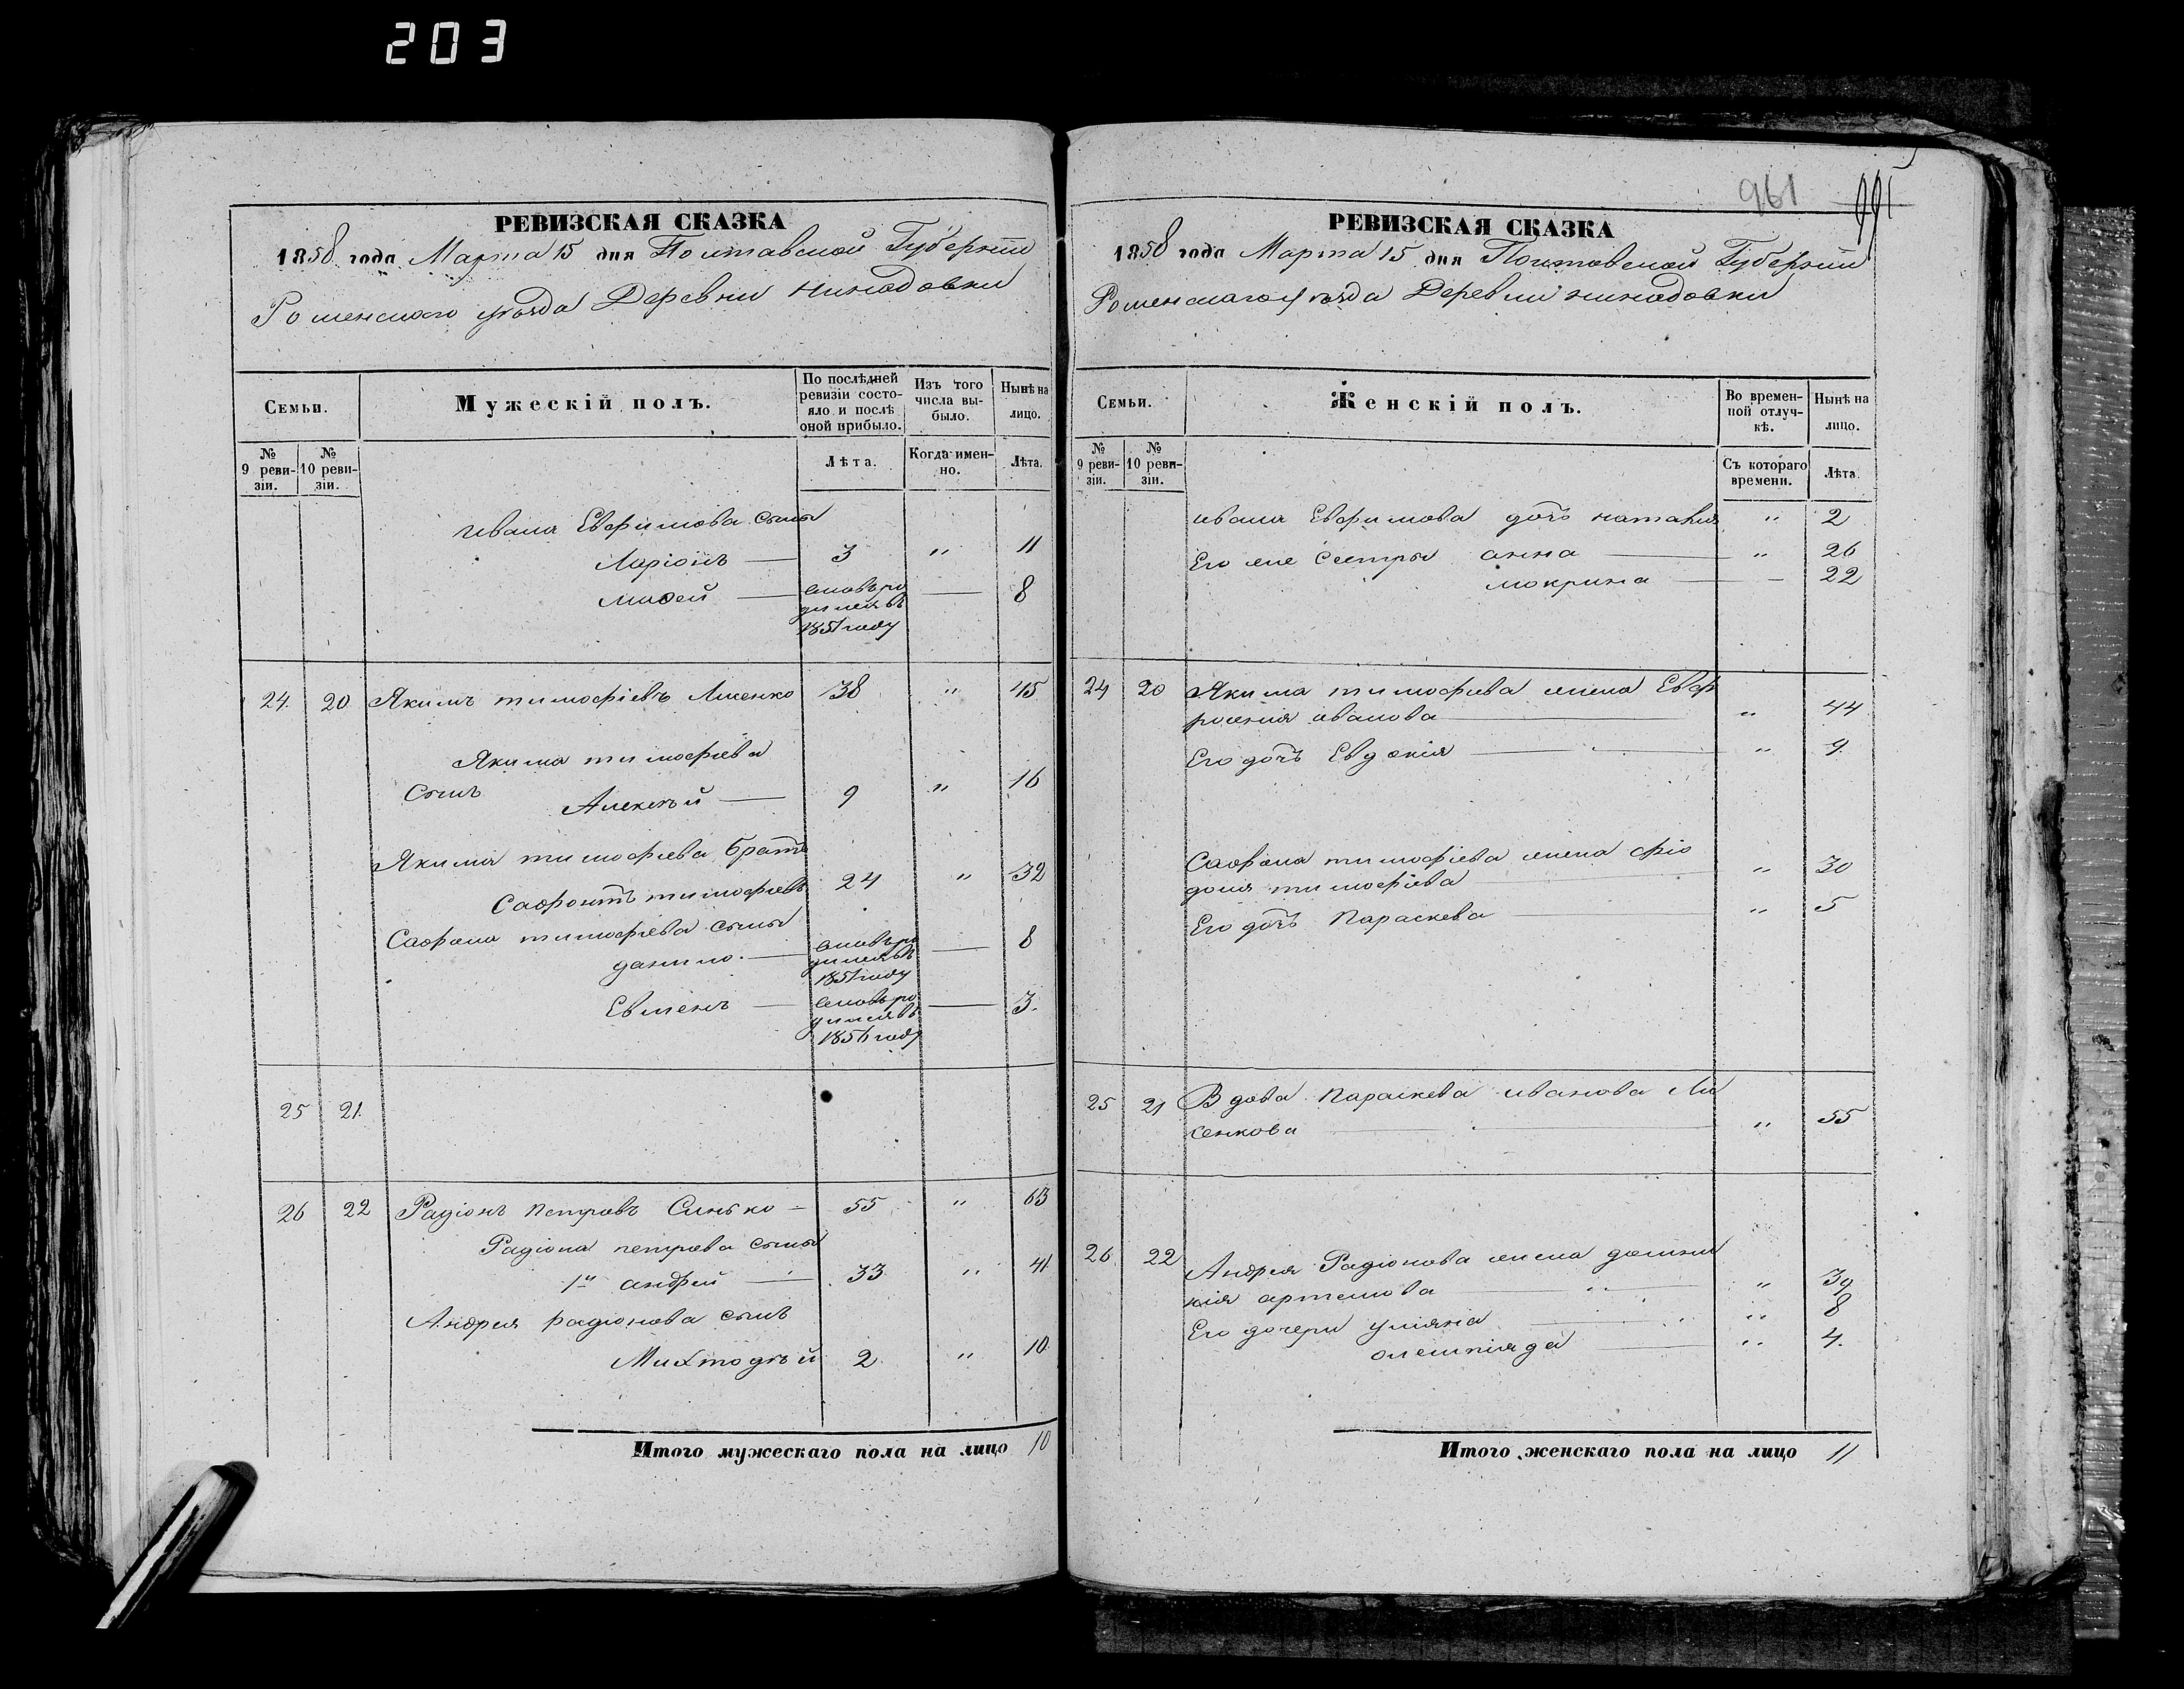 203
РЕВИЗСКАЯ СКАЗКА
1858 года Марта 15 дня Полтавской Губернии
Роменскаго уѣзда Деревни
Семьи.
Мужескій полъ.
По послѣдней ревизіи состояло и послѣ оной прибыло.
Изъ того числа выбыло.
Нынѣ на лицо.
№ 9 ревизіи.
№ 10 ревизіи.
Лѣта.
Когда именно.
Лѣта.
Ивана Евфимова сыны
Ларіонъ — 3 " 11
— родился въ 1851 году — 8
24. 20 Якимъ тимофіевъ Лисенко 38 " 45
Якима тимофіева
сынъ
Алексѣй — 9 " 16
Якима тимофіева братъ
тимофіевъ 24 " 32
Сафрона тимофіева сыны
данило. — родился въ 1851 году — 8
Евменъ — родился въ 1856 году — 3.
25 21.
26 22 Радіонъ петровъ Синько — 55 " 63
Радіона петрова сыны
1й андрей — 33 " 41
Андрея радіонова сынъ
2 " 10
Итого мужескаго пола на лицо 10
961 995
РЕВИЗСКАЯ СКАЗКА
1858 года Марта 15 дня Полтавской Губерніи
Роменскаго уѣзда Деревни
Семьи.
Женскій полъ.
Во временной отлучкѣ.
Нынѣ на лицо.
№ 9 ревизіи.
№ 10 ревизіи.
Съ котораго времени.
Лѣта.
ивана Евфимова дочь наталия " 2
Его же сестры анна — " 26
мокрина — — 22
24 20 Якима тимофіева жена Евф
росенія иванова — " 44
Его дочь Евдокія — " 9.
Сафрона тимофіева жена фіо
досія тимофіева — " 30
Его дочь Параскева — " 5
25 21 Вдова Параскева иванова Ли
сенкова — " 55
26. 22 Андрея Радіонова жена домни
кія артемова — " 39
Его дочери уліяна — " 8
олемпіяда — " 4.
Итого женскаго пола на лицо 11